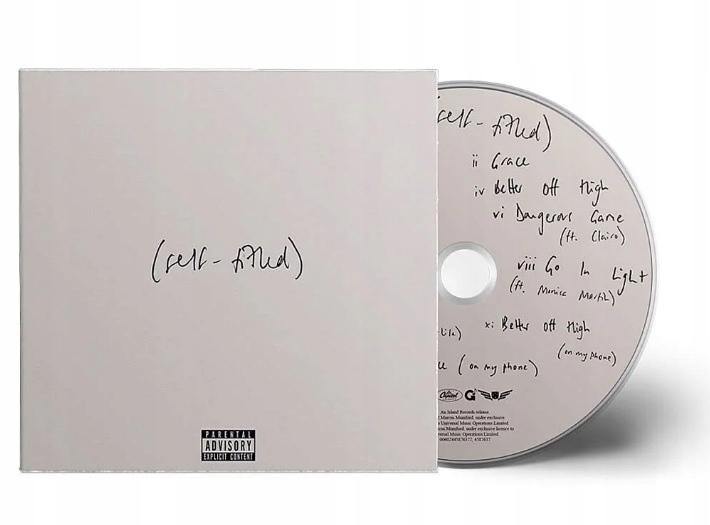 (self-titled)
PARENTAL
ADVISORY
EXPLICIT CONTENT
self-titled)
ii Grace
iv Better Off High
vi Dangerous Game
(ft. Clairo)
viii Go In Light
(ft. Monica Martin)
xi Better Off High
(on my phone)
(on my phone)
Capitol
An Island Records release
Marcus Mumford, under exclusive
Universal Music Operations Limited
Mumford, under exclusive licence to
Universal Music Operations Limited